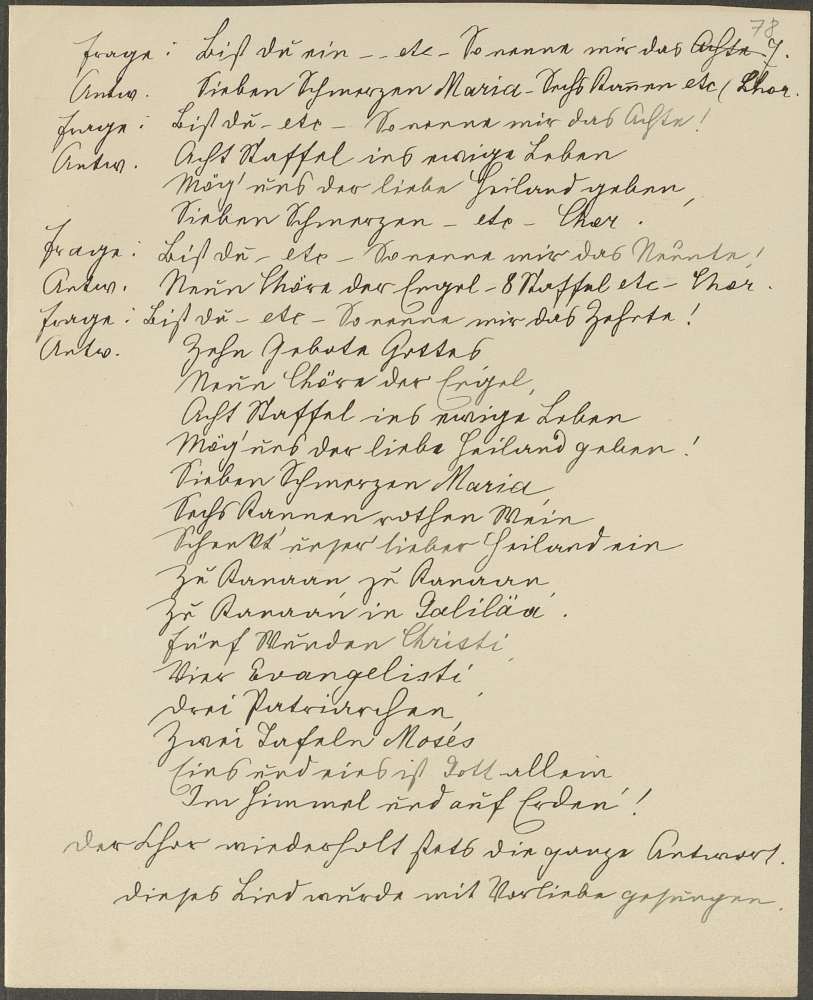 78
Frage: Bist du ein - - etc - So nenne mir das Achte 7.
Antw. Sieben Schmerzen Maria - Sechs Kañen etc ( Chor.
Frage: Bist du - etc - So nenne mir das Achte!
Antw. Acht Staffel ins ewige Leben
Mög' uns der liebe Heiland geben,
Sieben Schmerzen - etc - Chor.
Frage: Bist du - etc - So nenne mir das Neunte!
Antw. Neun Chöre der Engel - 8 Staffel etc - Chor.
Frage: Bist du - etc - So nenne mir das Zehnte!
Antw. Zehn Gebote Gottes
Neun Chöre der Engel,
Acht Staffel ins ewige Leben
Mög' uns der liebe Heiland geben!
Sieben Schmerzen Maria,
Sechs Kannen rothen Wein
Schenkt' unser lieber Heiland ein
Zu Kanaan zu Kanaan,
Zu Kanaan in Galiläa.
Fünf Wunden Christi,
Vier Evangelisti,
Drei Patriarchen,
Zwei Tafeln Mosés
Eins und eins ist Gott allein
Im Himmel und auf Erden!
Der Chor wiederholt stets die ganze Antwort.
Dieses Lied wurde mit Vorliebe gesungen.